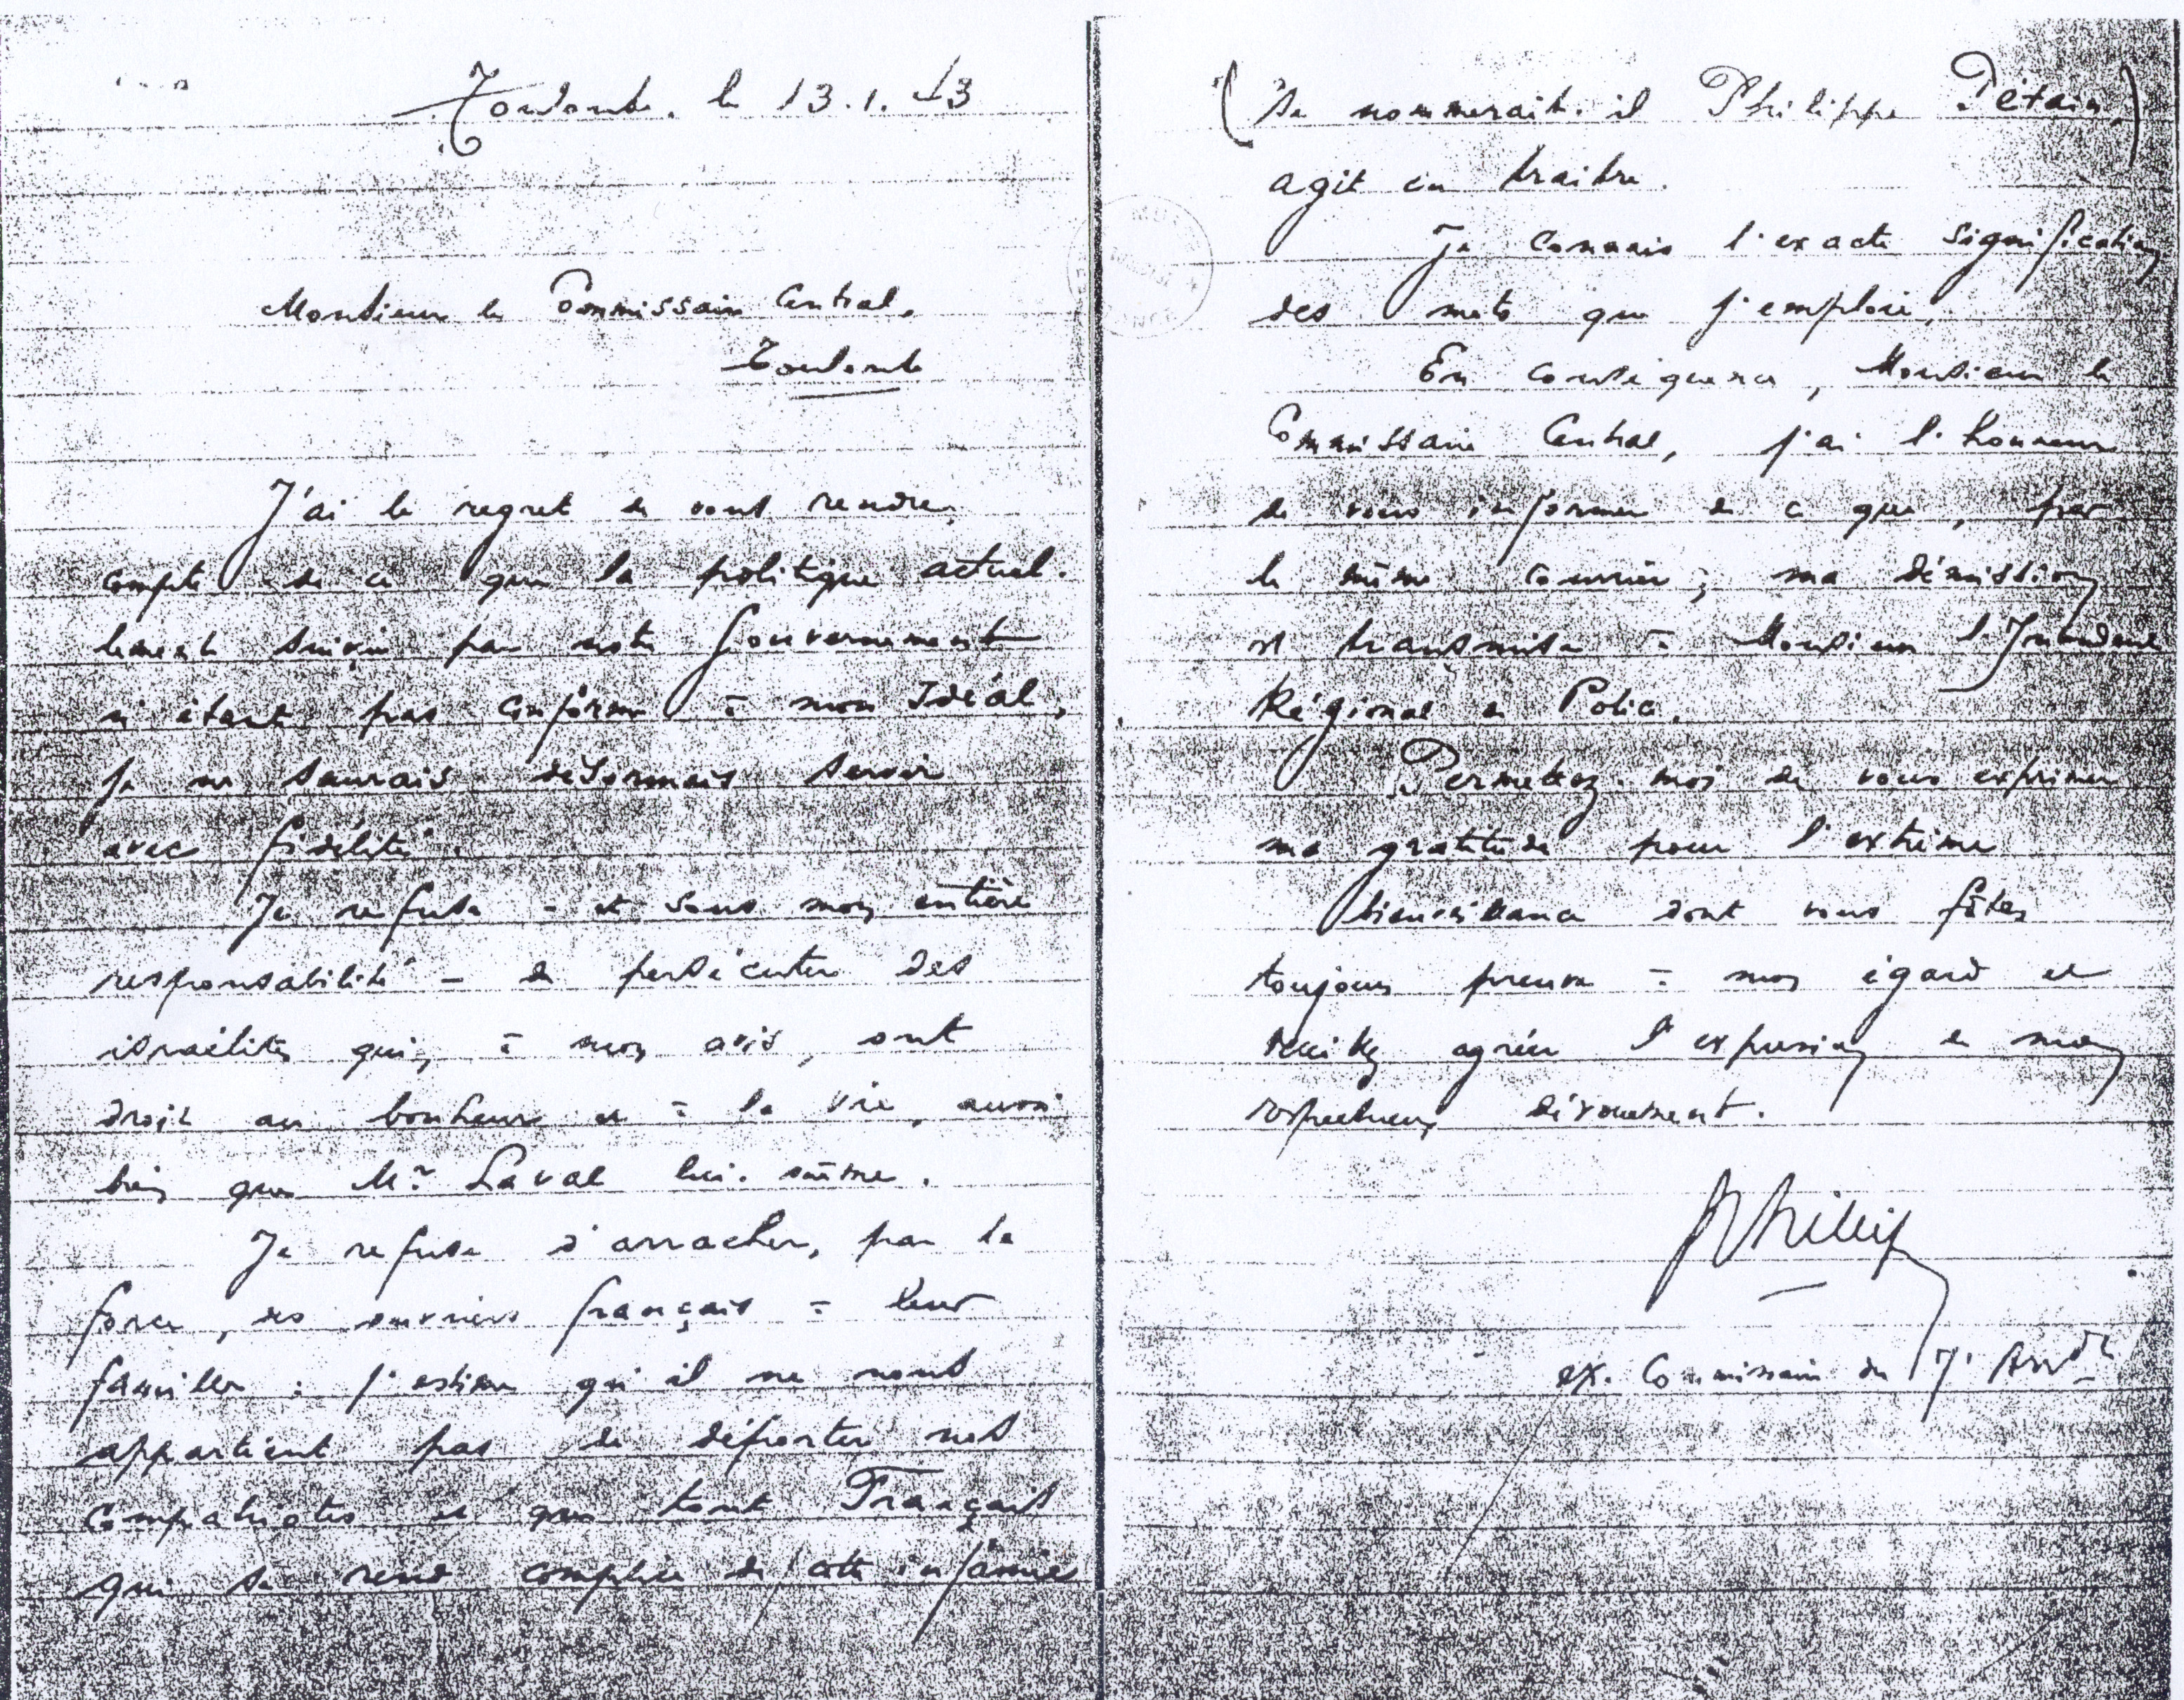 Toulouse. le 13.1.43
Monsieur le Commissaire Central.
Toulouse
J'ai le regret de vous rendre
compte de ce que la politique actuel-
lement suivie par notre Gouvernement
n'étant pas conforme à mon Idéal,
je ne saurais désormais servir
avec fidélité.
Je refuse - et sous mon entière
responsabilité - de persécuter des
israélites qui, à mon avis, ont
droit au bonheur et à la vie, aussi
bien que Mr Laval lui-même.
Je refuse d'arracher, par la
force, des ouvriers français à leur
famille : j'estime qu'il ne nous
appartient pas de déporter nos
compatriotes et que tout Français
qui se rend complice de cette infâmie
(Se nommerait-il Philippe Pétain,)
agit en traitre.
Je connais l'exacte signification
des mots que j'emploie.
En conséquence, Monsieur le
Commissaire Central, j'ai l'honneur
de vous informer de ce que, par
le même courrier, ma démission
est transmise à Monsieur l'Intendant
Régional de Police.
Permettez-moi de vous exprimer
ma gratitude pour l'extrême
bienveillance dont vous fîtes
toujours preuve à mon égard et
veuillez agréer l'expression de mon
respectueux dévouement.
Philip
ex. Commissaire du 7e Arrdt